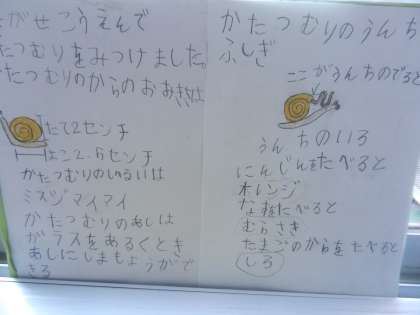 がせこうえんで
たつむりをみつけました
たつむりのからのおおきさは
たて2センチ
よこ2.5センチ
かたつむりのしるいは
ミスジマイマイ
かたつむりのあしは
ガラスをあるくとき
あしにしまもようがで
きる
かたつむりのうんち
ふしぎ
ここがうんちのでると
うんちのいろ
にんじんをたべると
オレンジ
なすをたべると
むらさき
たまごのからをたべると
しろ